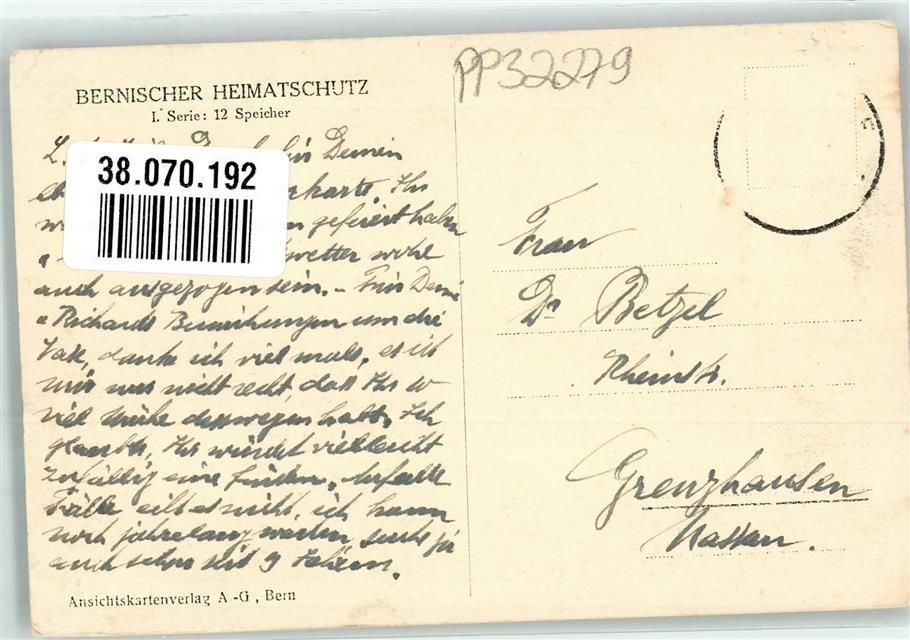 BERNISCHER HEIMATSCHUTZ
I. Serie: 12 Speicher
PP32279
38.070.192
für Deinen
karte, Ihr
gefeiert haben
wetter wohl
auch ausgezogen sein. – Für Deine
u Richards Bemühungen um die
danke ich viel mals, es ist
mir nur nicht recht, dass Ihr so
viel Mühe deswegen habt. Ich
glaubte, Ihr würdet vielleicht
zufällig eine finden. Auf alle
Fälle eilt es nicht, ich kann
noch jahrelang warten, suche ja
auch schon seit 9 Jahren.
Ansichtskartenverlag A.-G., Bern
Frau
Dr Betzel
Rheinstr.
Grenzhausen
Nassau.